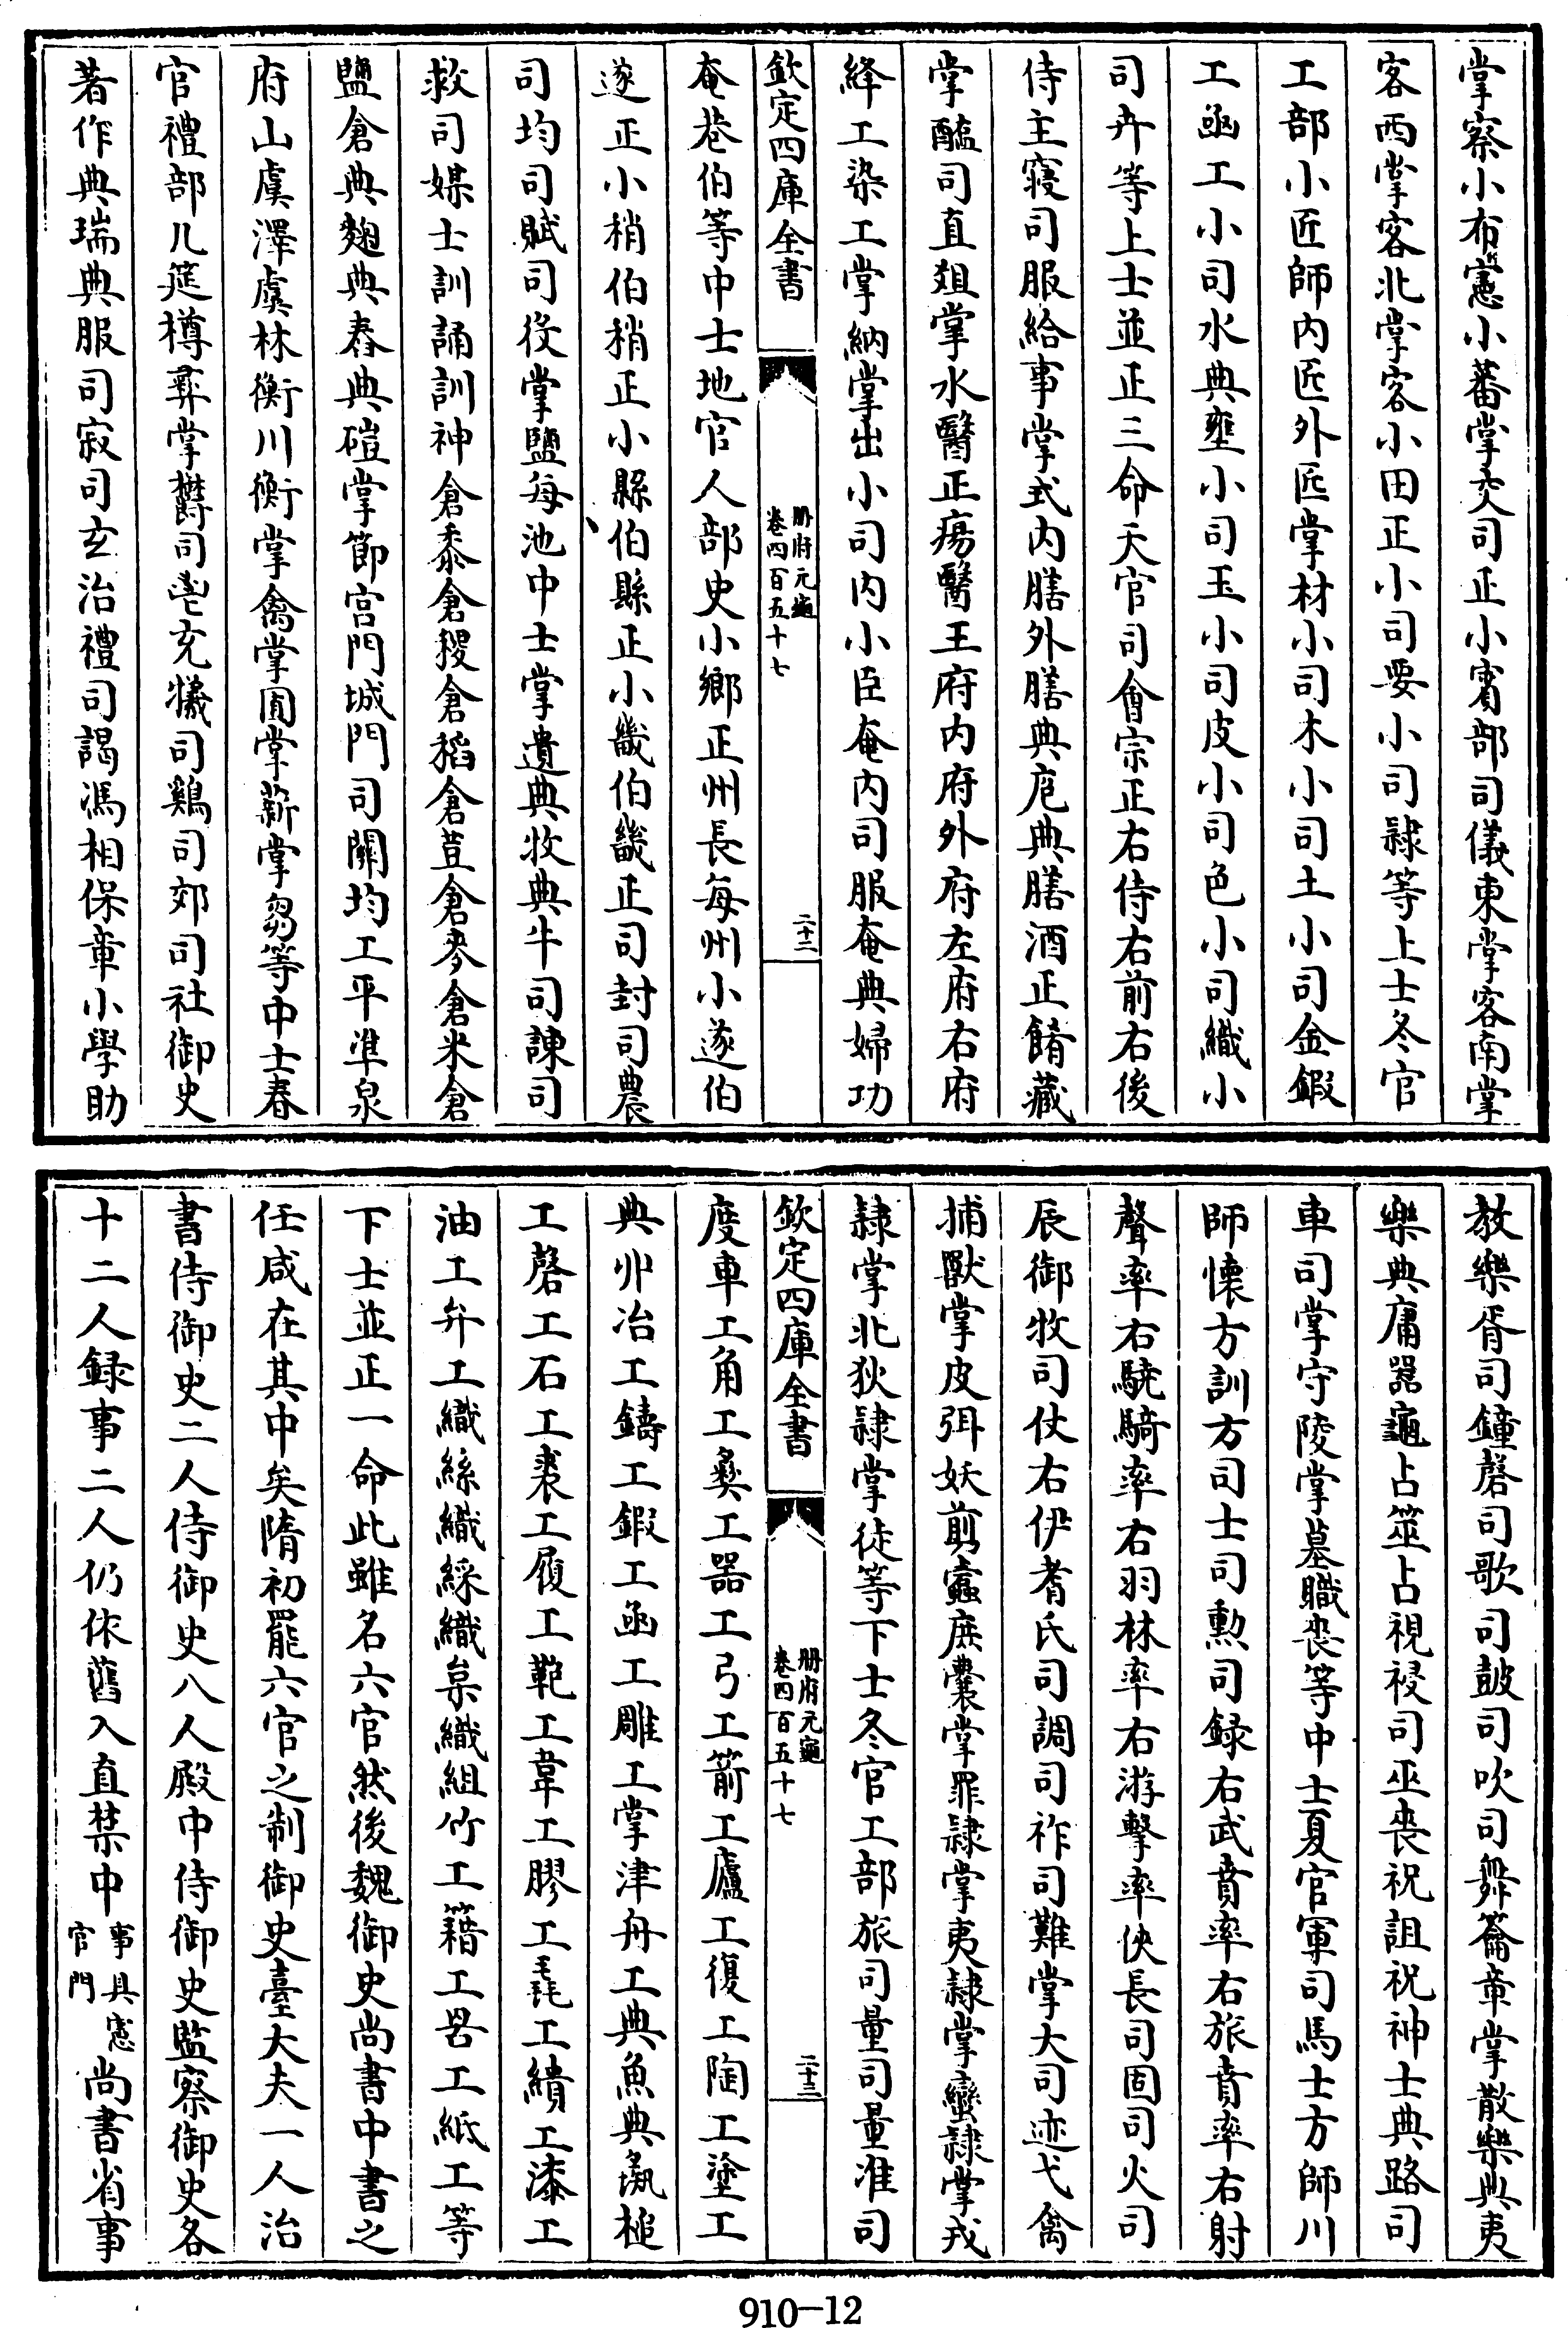 掌察小布憲小蕃掌交司正小賓部司儀東掌客南掌
客西掌客北掌客小田正小司要小司隷等上士冬官
工部小匠師內匠外匠掌材小司木小司土小司金鍛
工函工小司水典壅小司玉小司皮小司色小司織小
司卉等上士並正三命天官司會宗正右侍右前右後
侍主寢司服給事掌式內膳外膳典庖典膳酒正餚藏
掌醢司直俎掌冰醫正瘍醫王府內府外府左府右府
絳工染工掌納掌出小司內小臣奄內司服奄典婦功
欽定四庫全書
冊府元龜
卷四百五十七
二十二
奄巷伯等中士地官人部史小鄉正州長每州小遂伯
遂正小稍伯稍正小縣伯縣正小畿伯畿正司封司農
司均司賦司役掌鹽每池中士掌遺典牧典牛司諫司
救司媒士訓誦訓神倉黍倉稷倉稻倉荳倉麥倉米倉
鹽倉典麴典舂典磑掌節宮門城門司關均工平準泉
府山虞澤虞林衡川衡掌禽掌囿掌薪掌芻等中士春
官禮部几筵樽彛掌欝司鬯充犧司鷄司郊司社御史
著作典瑞典服司寂司玄治禮司謁馮相保章小學助
教樂胥司鐘磬司歌司鼓司吹司舞籥章掌散樂典夷
樂典庸器龜占筮占視祲司巫喪祝詛祝神士典路司
車司掌守陵掌墓職喪等中士夏官軍司馬士方師川
師懷方訓方司士司勲司録右武賁率右旅賁率右射
聲率右驍騎率右羽林率右游擊率俠長司固司火司
辰御牧司仗右伊耆氏司調司祚司難掌大司迹弋禽
捕獸掌皮弭妖剪蠧庶嚢掌罪隷掌夷隷掌蠻隷掌戎
隷掌北狄隷掌徒等下士冬官工部旅司量司量准司
欽定四庫全書
冊府元龜
卷四百五十七
二十三
度車工角工彜工器工弓工箭工廬工復工陶工塗工
典丱冶工鑄工鍛工函工雕工掌津舟工典魚典彘槌
工磬工石工裘工履工鞄工韋工膠工毳工繢工漆工
油工弁工織絲織綵織枲織組竹工籍工罟工紙工等
下士並正一命此雖名六官然後魏御史尚書中書之
任咸在其中矣隋初罷六官之制御史臺大夫一人治
書侍御史二人侍御史八人殿中侍御史監察御史各
十二人録事二人仍依舊入直禁中事具憲官門尚書省事
910-12